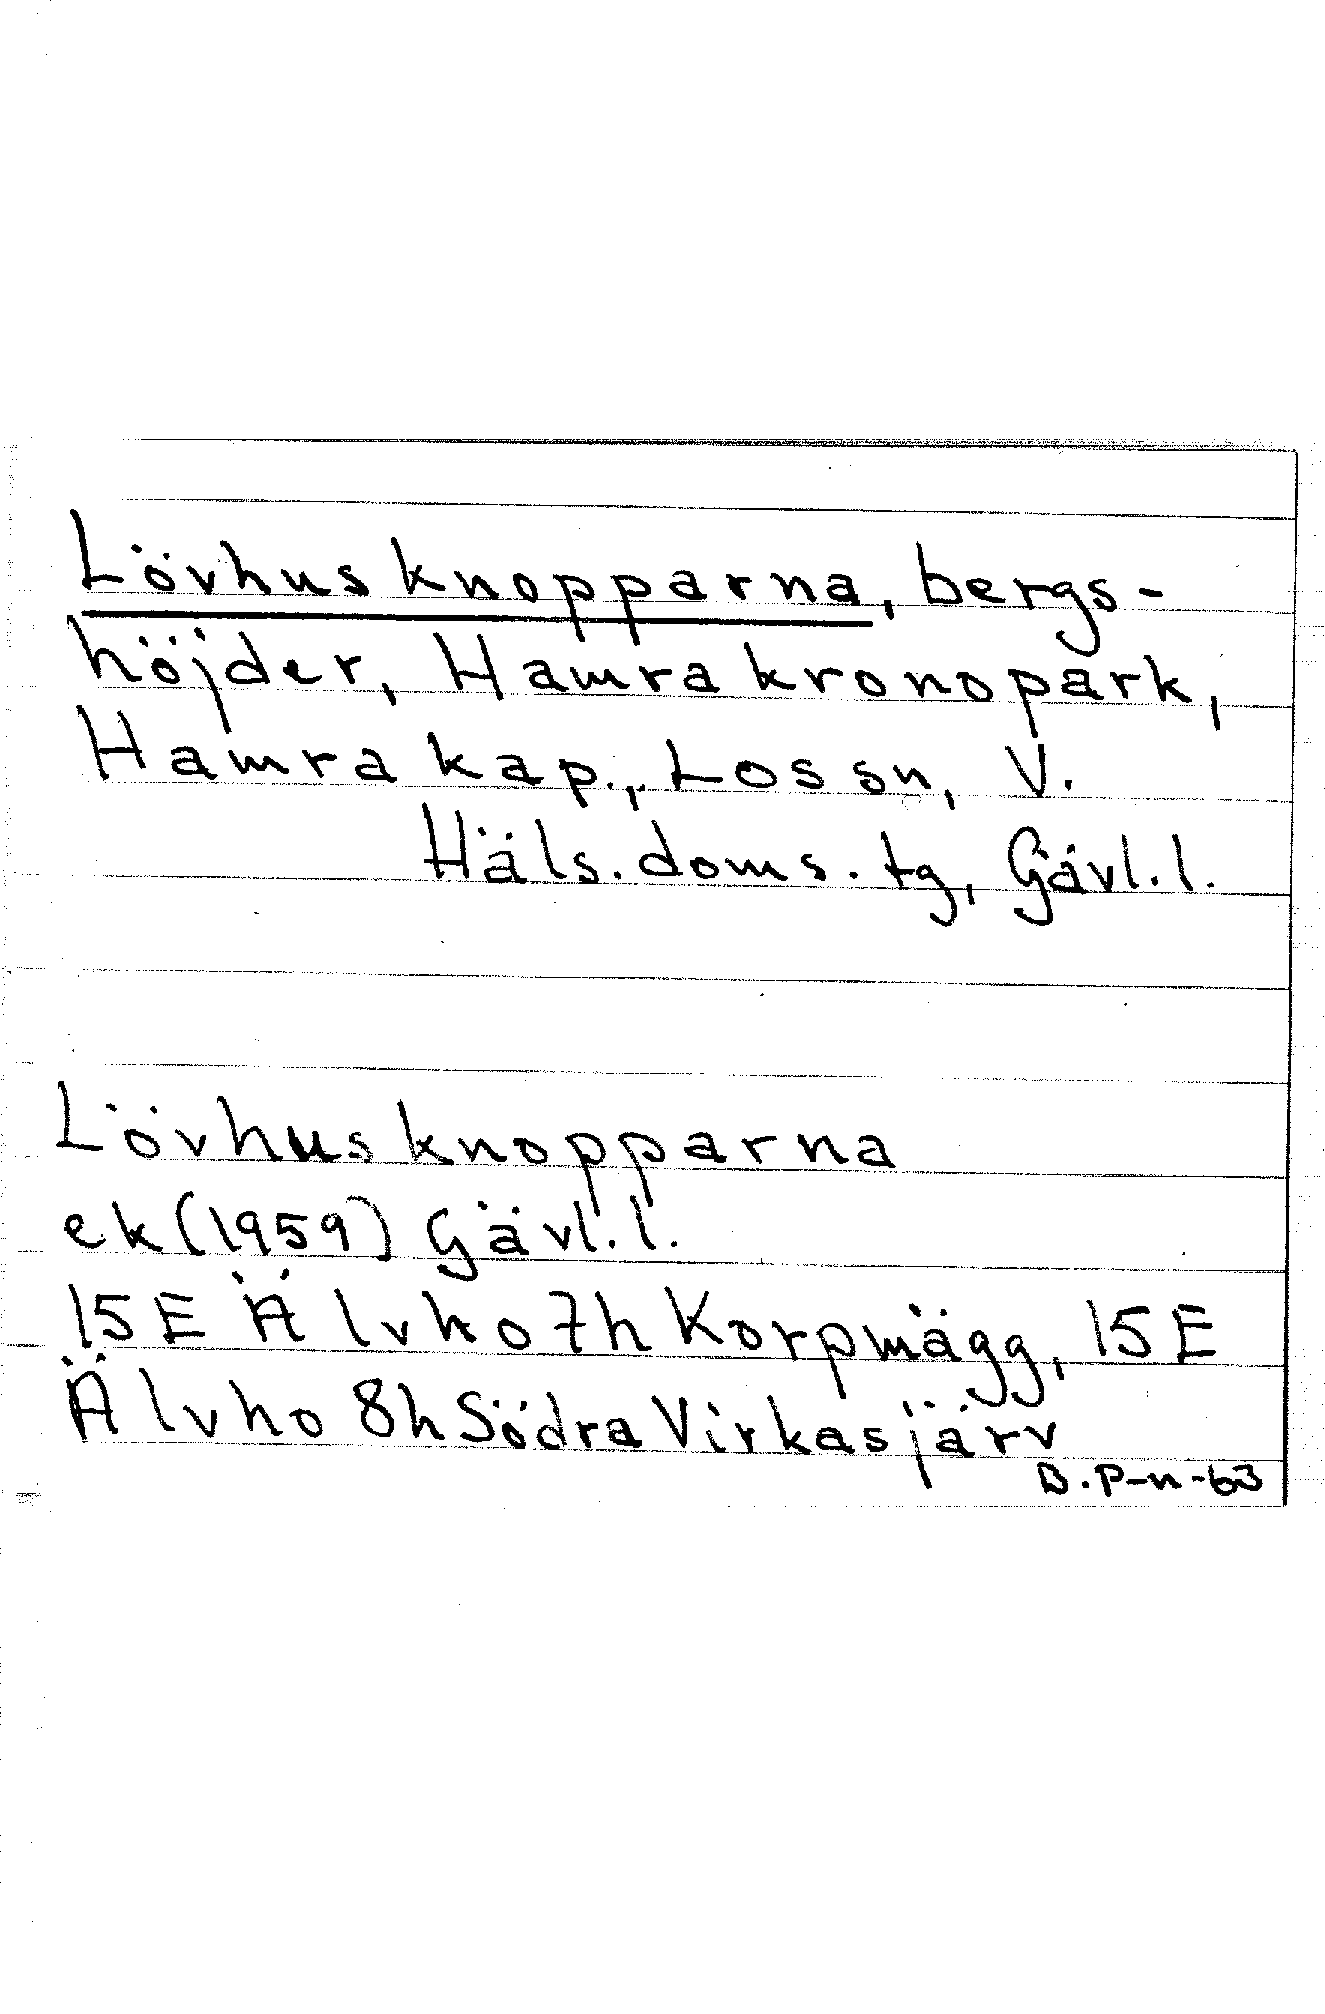 Lövhusknopparna, bergs-
höjder, Hamra kronopark,
Hamra kap., Los sn, V.
Häls. doms. tg, Gävl. l.
Lövhusknopparna
ek (1959) Gävl. l.
15E Älvho 7h Korpmägg, 15E
Älvho 8h Södra Virkasjärv
B. P-n -63